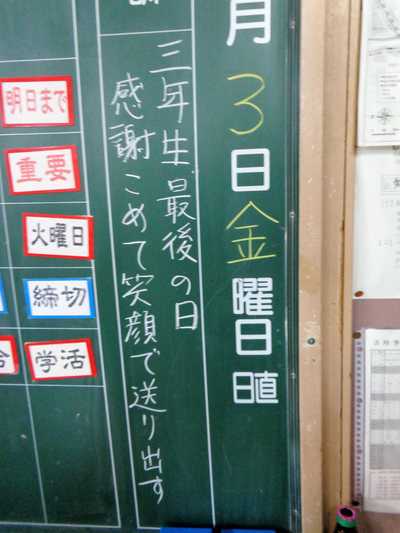 月3日金曜日
日直
三年生最後の日
感謝こめて笑顔で送り出す
明日まで
重要
火曜日
締切
学活